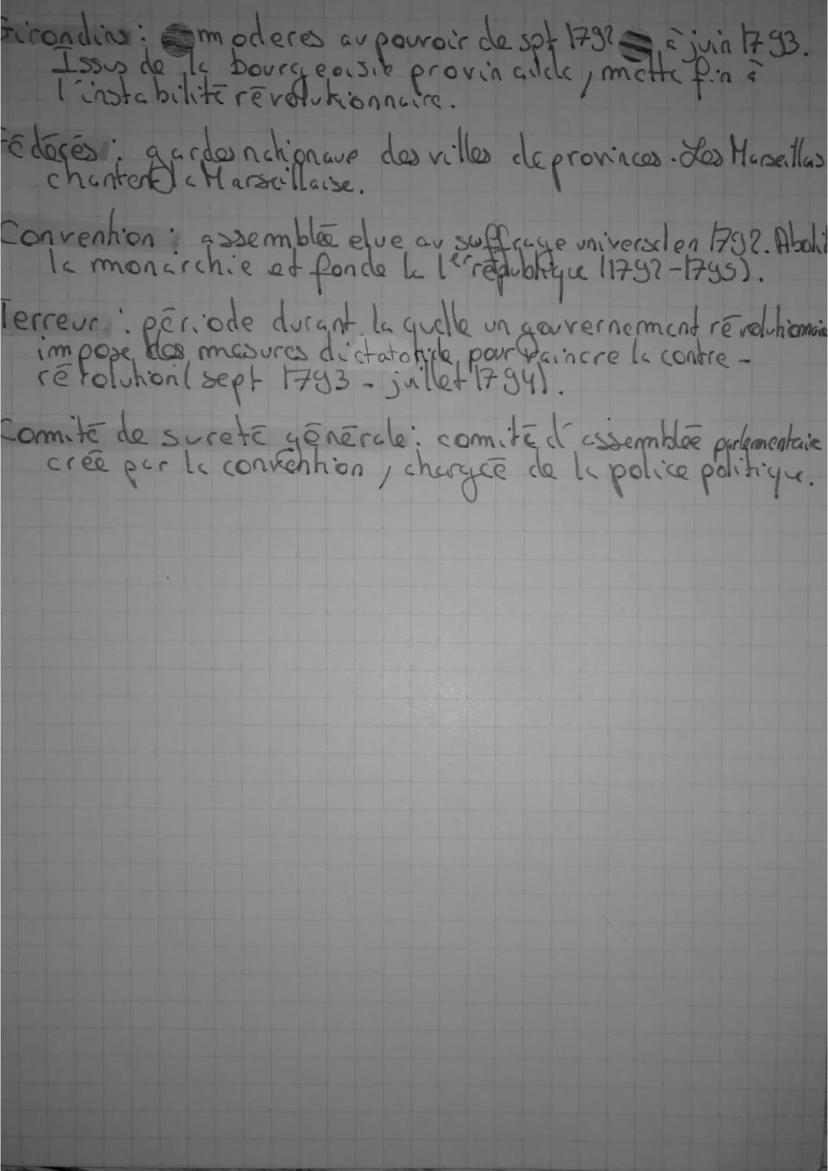 Girondins : moderes au pouvoir de spt 1792 à juin 1793.
Issus de la bourgeoisie provinciale, mette fin à
l'instabilité révolutionnaire.
Fédérés : gardes nationaux des villes de provinces. Les Marseillas
chantent la Marseillaise.
Convention : assemblée elue au suffrage universel en 1792. Aboli
la monarchie et fonde la 1er république (1792-1795).
Terreur : période durant laquelle un gouvernement révolutionnaire
impose des mesures dictatoriale pour vaincre la contre-
révolution (sept 1793 - juillet 1794).
Comité de sureté générale : comité d'assemblée parlementaire
crée par la convention, chargée de la police politique.